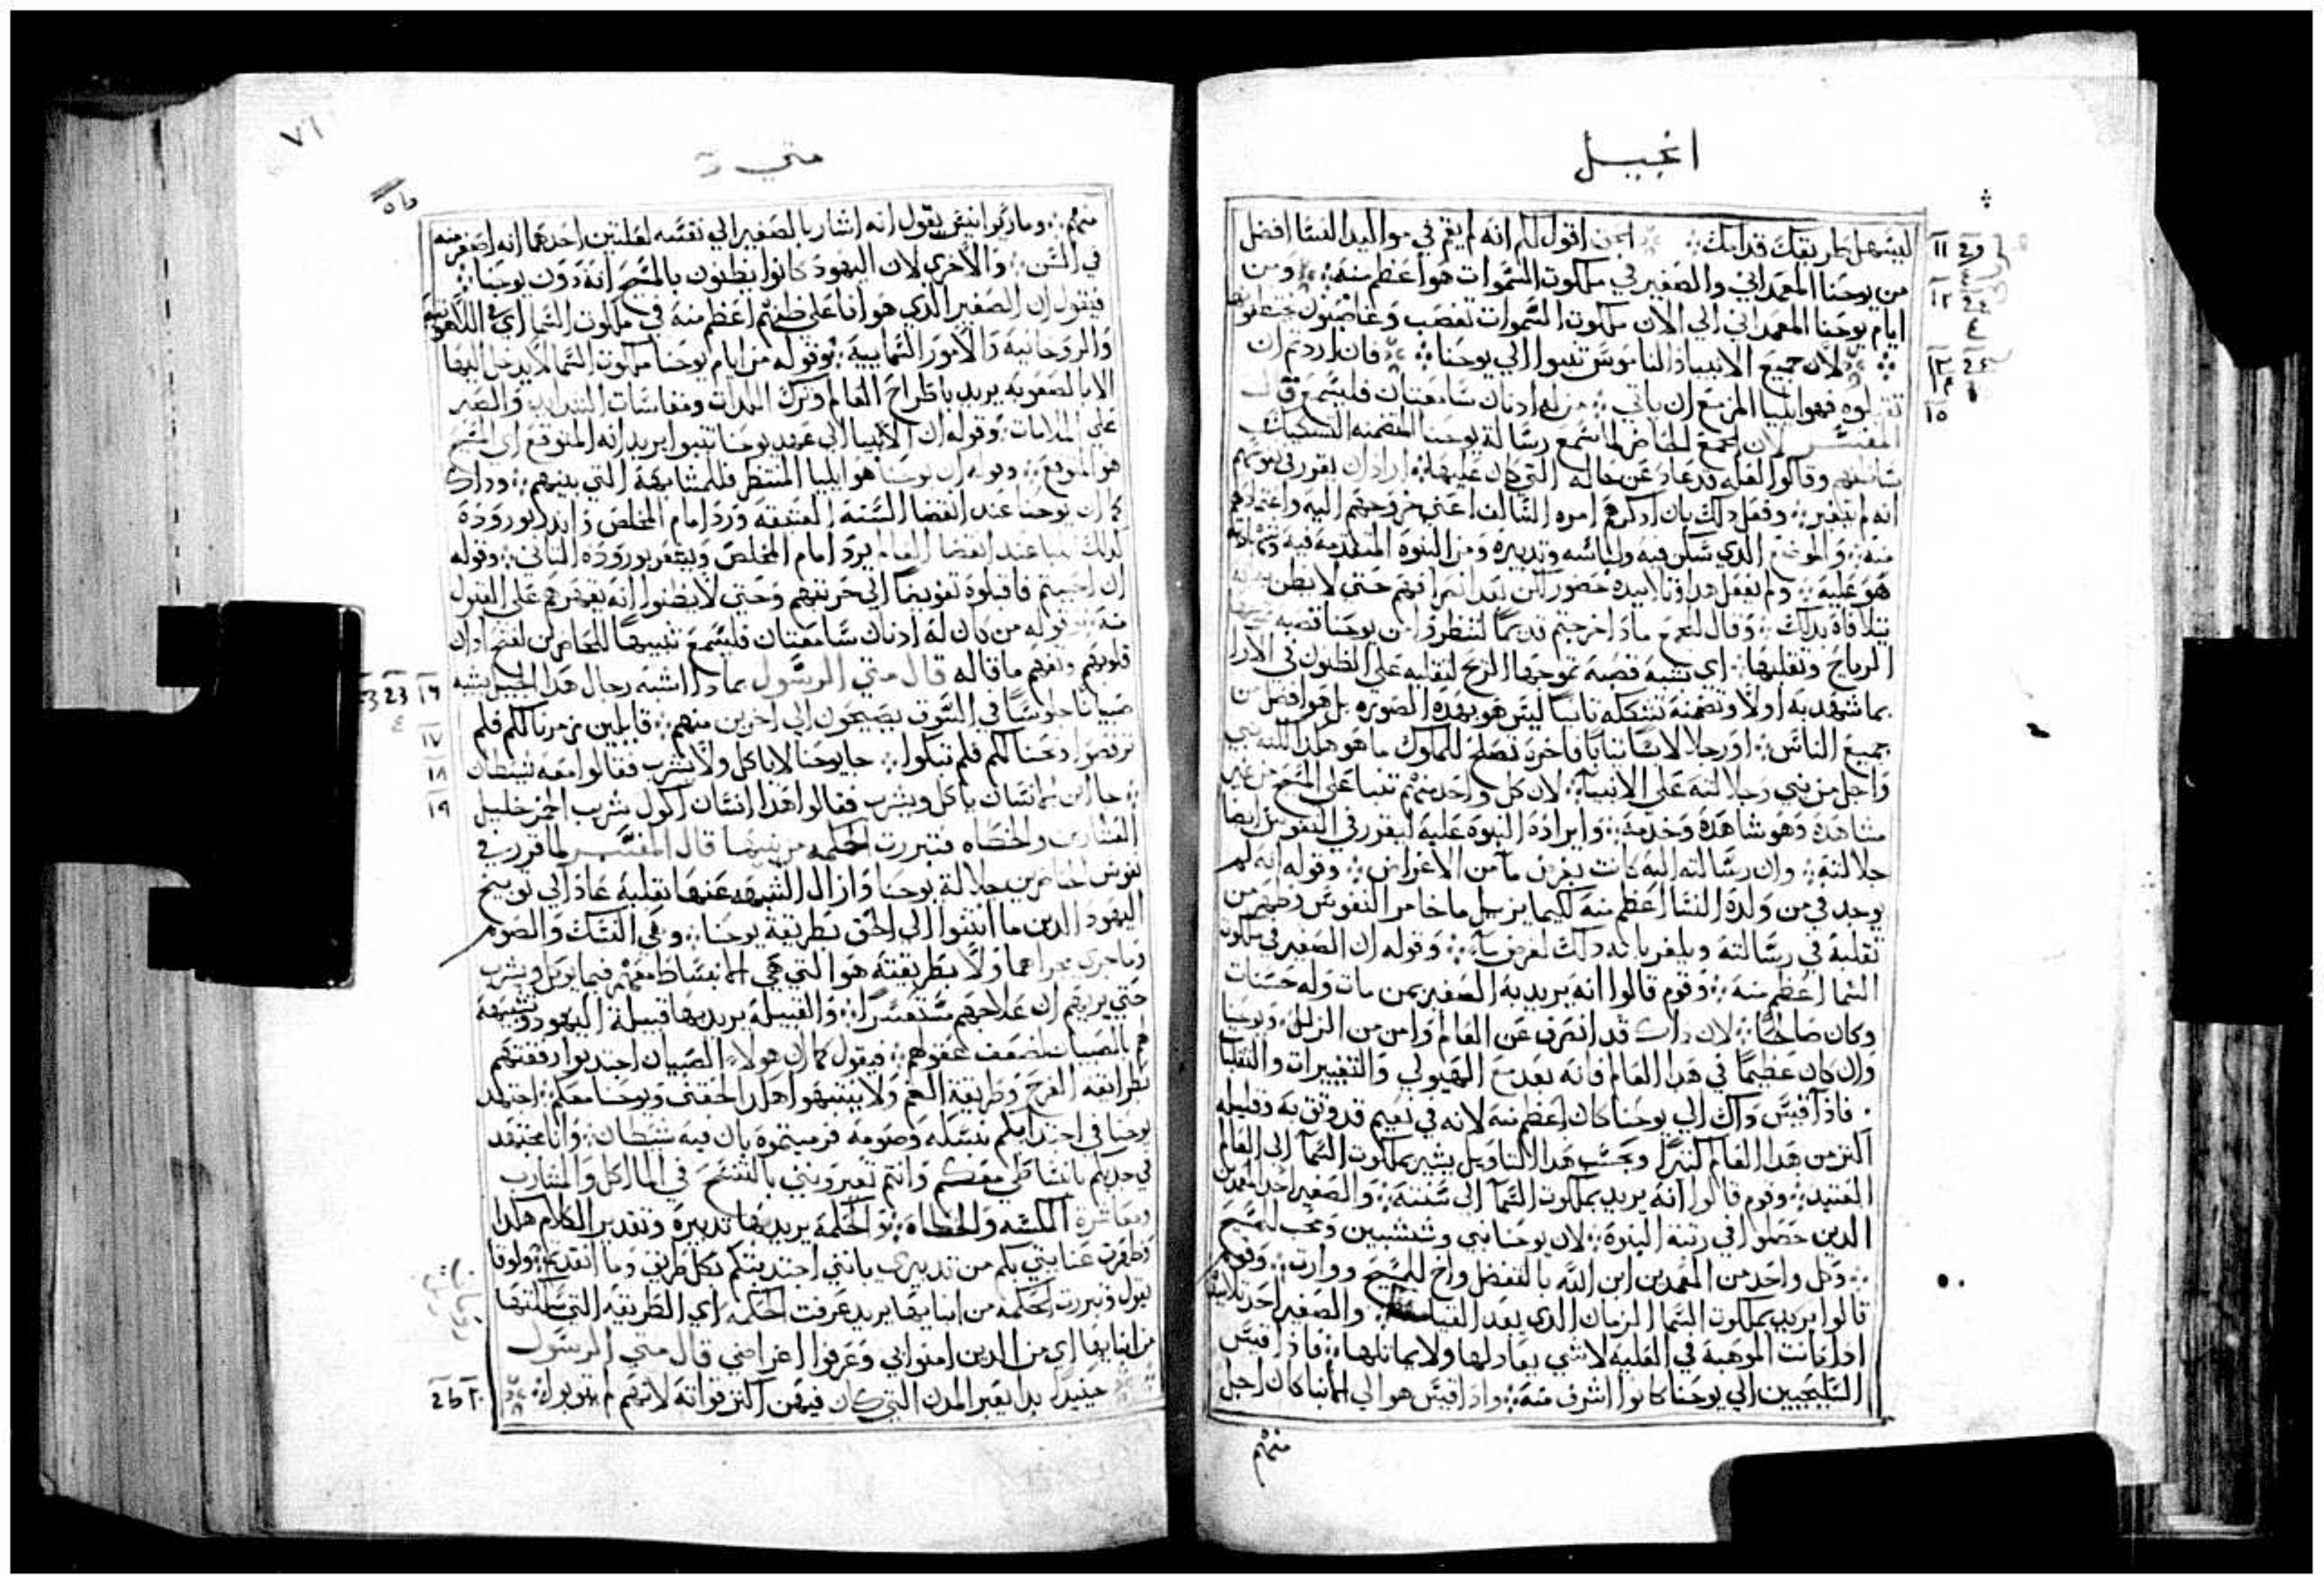 انجيل
ليسهل طريقك قدامك الحق اقول لكم انه لم يقم في مواليد النسا افضل
من يوحنا المعمداني والصغير في ملكوت السموات هو اعظم منه ومن
ايام يوحنا المعمداني الي الان ملكوت السموات تغصب وغاصبون
لان جميع الانبيا والناموس تنبوا الي يوحنا فان اردتم ان
تقبلوه فهو ايليا المزمع ان ياتي من له ادنان سامعتان فليسمع قال
المفسر لان الجمع الحاضر لما سمع رسالة يوحنا المتضمنه التشكيك
وقالوا لعله قد عاد عن حاله التي كان عليها اراد ان يقرر في نفوسهم
انه لم يتغير وفعل دلك بان ادكرهم امره السالف اعني خروجهم اليه واعتمادهم
منه والموضع الدي سكن فيه ولباسه وتدبيره ومن النبوة المتقدمة فيه
هو عليه ولم يفعل هدا وتلاميده حضور لكن بعد انصرافهم حتي لا يظن
بدلك وقال للجمع مادا خرجتم قديما لتنظروا من يوحنا قصبه
الرياح وتقلبها اي تشبه قصبة تموجها الريح لتقلبه علي الظنون في الارا
بما شهد به اولا وتضمنه تشككه ثانيا ليس هو بهده الصوره بل هو افضل من
جميع الناس او رجلا لابسا ثيابا فاخرة تصلح للملوك ما هو هكدا لكنه نبي
واجل من نبي وجلالته علي الانبيا لان كل واحد منهم تنبا علي المسيح من غير
مشاهدة وهو شاهده وخدمه وايراده النبوة عليه ليقرر في النفوس ايضا
جلالته وان رسالته اليه كانت بغرض ما من الاغراض وقوله انه لم
يوجد في من ولدة النسا اعظم منه لكيما يزيل ما خامر النفوس وظنهم من
تقلبه في رسالته ويلغي بانه دلك لغرض ما وقوله ان الصغير في ملكوت
السما اعظم منه وقوم قالوا انه يريد به الصغير بمن مات وله حسنات
وكان صالحا لان داك قد انصرف عن العالم وامن من الزلل ويوحنا
وان كان عظيما في هدا العالم فانه بعد مع الهيولي والتغييرات والتقلبات
فادا قيس داك الي يوحنا كان اعظم منه لانه في نعيم قد وثق به وقليله
اكثر من هدا العالم كثيرا وبحسب هدا التاويل يشير بملكوت السما الي العالم
العتيد وقوم قالوا انه يريد بملكوت السما الي سنته والصغير احد المعمدين
الدين حصلوا في رتبة البنوة لان يوحنا نبي وشبين ومحب للمسيح
وكل واحد من المعمدين ابن الله بالتفضل واخ للمسيح ووارث وقوم
قالوا يريد بملكوت السما الزمان الدي بعد القيامة والصغير احد تلاميد
ادا كانت الموهبة في العلية لا شي يعادلها ولا يماثلها فادا قيس
السليحيين الي يوحنا كانوا اشرف منه وادا قيس هو الي الانبيا كان اجل
منهم
متي
منهم وماراير انيس يقول انه اشار بالصغير الي نفسه لعلتين احدهما انه اصغر منه
في السن والاخري لان اليهود كانوا يظنون بالمسيح انه دون يوحنا
فيقول ان الصغير الدي هو انا علي ظنهم اعظم منه في ملكوت السما اي في اللاهوتية
والروحانية والامور السمايية وقوله من ايام يوحنا ملكوت السما لا يدخل اليها
الا بالصعوبه يريد باطراح العالم وترك اللدات ومقاساة الشدايد والصبر
علي الملامات وقوله ان الانبيا الي عهد يوحنا تنبوا يريد انه المتوقع اي المسيح
هو المتوقع وقوله ان يوحنا هو ايليا المنتظر فللمشابهة التي بينهم وداك
كما ان يوحنا عند انقضا السنة العتيقه ورد امام المخلص واندر بوروده
كدلك ايليا عند انقضا العالم يرد امام المخلص ويبشر بوروده الثاني وقوله
ان احببتم فاقبلوه تفويضا الي حريتهم وحتي لا يظنوا انه يقهرهم علي القبول
منه قوله من كان له ادنان سامعتان فليسمع تنبيها للحاضرين لفتح ادان
قلوبهم وتفهم ما قاله قال متي الرسول بمادا اشبه رجال هدا الجيل يشبه
صبيانا جلوسا في السوق يصيحون الي اخرين منهم قايلين زمرنا لكم فلم
ترقصوا ونحنا لكم فلم تبكوا جا يوحنا لا ياكل ولا يشرب فقالوا معه شيطان
جا ابن الانسان ياكل ويشرب فقالوا هدا انسان اكول شريب الخمر خليل
العشارين والخطاه فتبررت الحكمه من بنيها قال المفسر لما قرر في
نفوس الحاضرين جلالة يوحنا وازال الشبهه عنها بقلبه عاد الي توبيخ
اليهود الدين ما انثنوا الي الحق بطريقة يوحنا وهي النسك والصوم
وما جري مجراهما ولا بطريقته هو التي هي الانبساط معهم فيما يوكل ويشرب
حتي يريهم ان علاجهم متعسرا والقبيلة يريد بها قبيلة اليهود وتشبيهه
هم بالصبيان لضعف عقولهم فيقول كما ان هولا الصبيان اجتدبوا رفقتهم
بطرايقه الفرح وطريقة الغم ولا ينتبهوا هكدا لحقني ويوحنا معكم اجتهد
يوحنا في اجتدابكم بنسكه وصومه فرميتموه بان فيه شيطان وانا مجتهد
في جدبكم بانبساطي معكم وانتم تعيرونني بالتفسح في الماكل والمشارب
ومعاشرة المكسه والخطاه والحكمة يريد بها تدبيره وتقدير الكلام هكدا
وظهرت عنايتي بكم من تدبيري بانني اجتدبتكم بكل طريق وما انقدتم ولوقا
يقول وتبررت الحكمه من ابنايها يريد عرفت الحكمه اي الطريقه التي سلكتها
من ابنايها اي من الدين امنوا بي وعرفوا اغراضي قال متي الرسول
حينيد بدا يعير المدن التي كان فيهن اكثر قواته لانهم لم يتوبوا